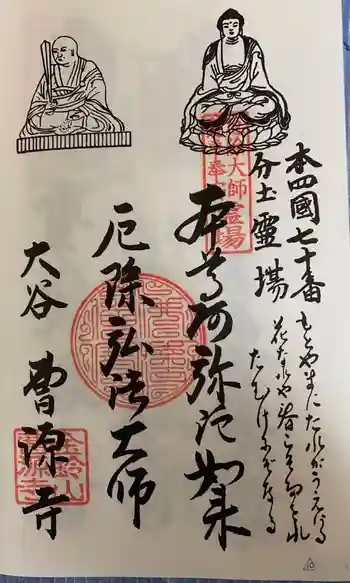 本四國七十番
分土靈場
もとやまにたれがうえける
花なれや春こそたをれ
たむけにぞなる
大師霊場
奉
本尊阿弥陀如来
厄除弘法大師
大谷 曹源寺